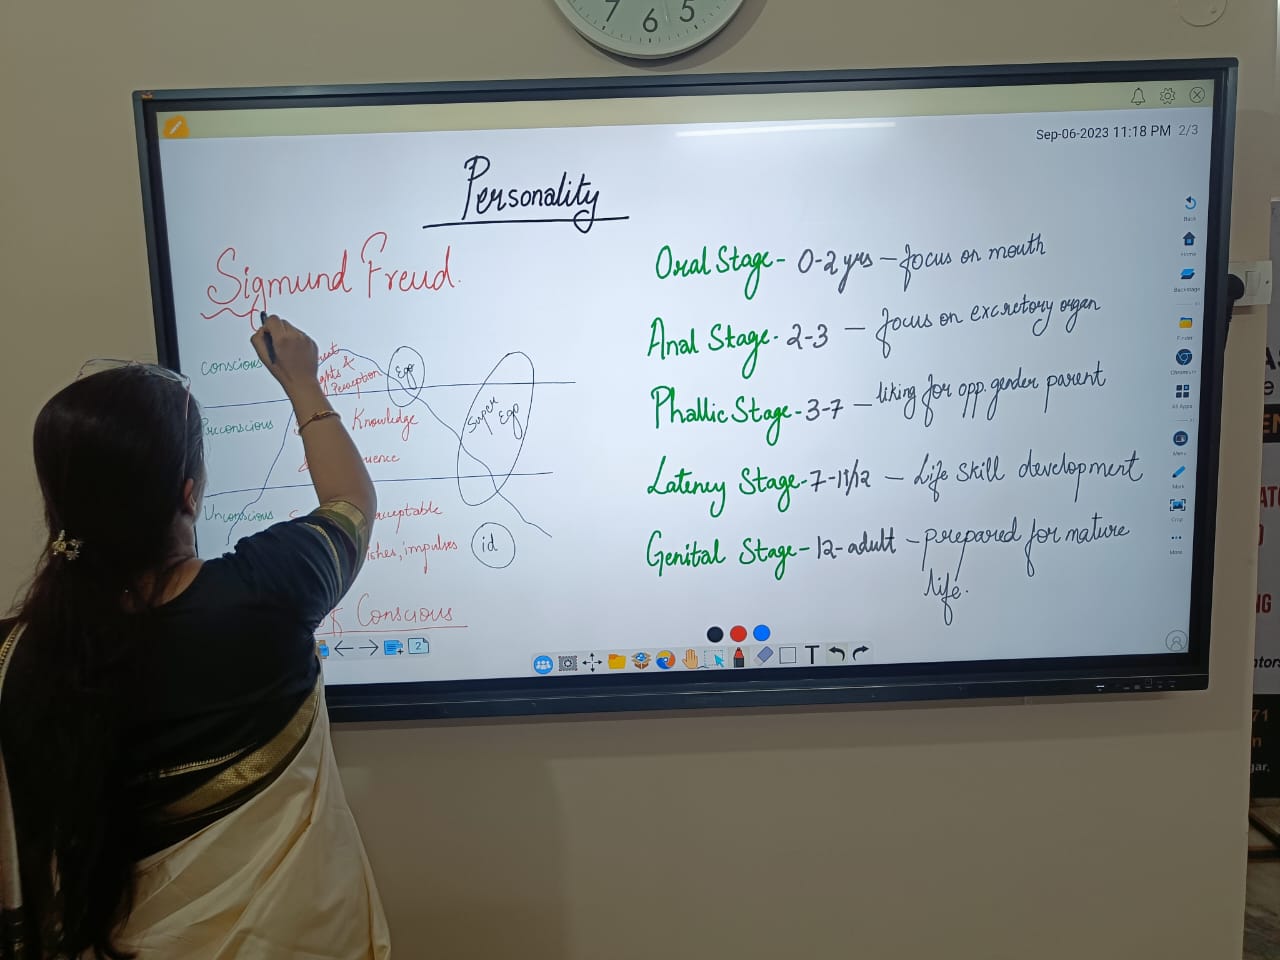 7 6 5
Sep-06-2023 11:18 PM 2/3
Personality
Sigmund Freud.
Conscious
& 
Perception
Ego
Preconscious
Knowledge
Super
Ego
Unconscious
impulses
id
Conscious
Oral Stage - 0-2 yrs - focus on mouth
Anal Stage - 2-3 - focus on excretory organ
Phallic Stage - 3-7 - liking for opp. gender parent
Latency Stage - 7-11/12 - Life skill development
Genital Stage - 12-adult - prepared for mature
life.
Back
Home
Backstage
Finder
Chromium
All Apps
Menu
Mark
Crop
More
2
T